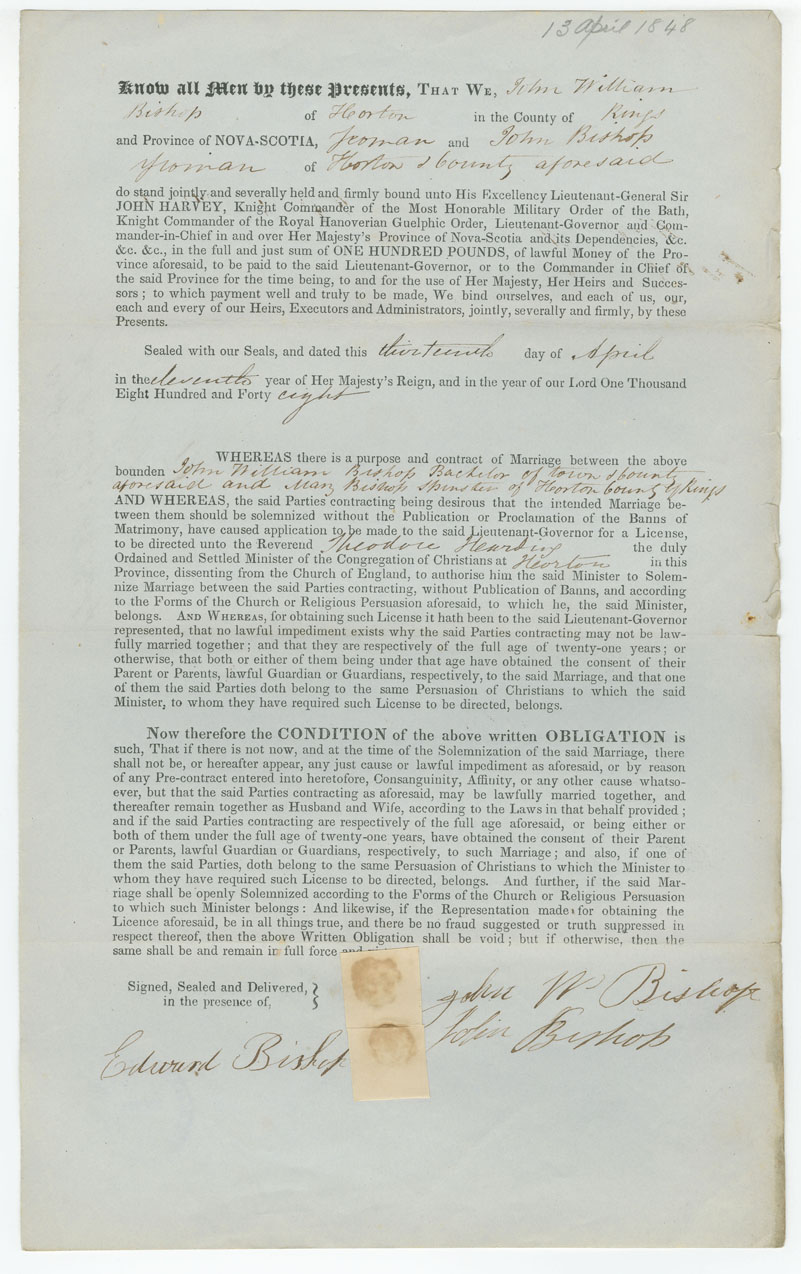 13 April 1848
Know all Men by these Presents, THAT WE, John William
Bishop of Horton in the County of Kings
and Province of NOVA-SCOTIA, Yeoman and John Bishop
Yeoman of Horton & County aforesaid
do stand jointly and severally held and firmly bound unto His Excellency Lieutenant-General Sir
JOHN HARVEY, Knight Commander of the Most Honorable Military Order of the Bath,
Knight Commander of the Royal Hanoverian Guelphic Order, Lieutenant-Governor and Com-
mander-in-Chief in and over Her Majesty's Province of Nova-Scotia and its Dependencies, &c.
&c. &c., in the full and just sum of ONE HUNDRED POUNDS, of lawful Money of the Pro-
vince aforesaid, to be paid to the said Lieutenant-Governor, or to the Commander in Chief of
the said Province for the time being, to and for the use of Her Majesty, Her Heirs and Succes-
sors ; to which payment well and truly to be made, We bind ourselves, and each of us, our,
each and every of our Heirs, Executors and Administrators, jointly, severally and firmly, by these
Presents.
Sealed with our Seals, and dated this thirteenth day of April
in the eleventh year of Her Majesty's Reign, and in the year of our Lord One Thousand
Eight Hundred and Forty eight
WHEREAS there is a purpose and contract of Marriage between the above
bounden John William Bishop Bachelor of town & County
aforesaid and Mary Bishop Spinster of Horton County of Kings
AND WHEREAS, the said Parties contracting being desirous that the intended Marriage be-
tween them should be solemnized without the Publication or Proclamation of the Banns of
Matrimony, have caused application to be made to the said Lieutenant-Governor for a License,
to be directed unto the Reverend Theodore Harding the duly
Ordained and Settled Minister of the Congregation of Christians at Horton in this
Province, dissenting from the Church of England, to authorise him the said Minister to Solem-
nize Marriage between the said Parties contracting, without Publication of Banns, and according
to the Forms of the Church or Religious Persuasion aforesaid, to which he, the said Minister,
belongs. AND WHEREAS, for obtaining such License it hath been to the said Lieutenant-Governor
represented, that no lawful impediment exists why the said Parties contracting may not be law-
fully married together ; and that they are respectively of the full age of twenty-one years ; or
otherwise, that both or either of them being under that age have obtained the consent of their
Parent or Parents, lawful Guardian or Guardians, respectively, to the said Marriage, and that one
of them the said Parties doth belong to the same Persuasion of Christians to which the said
Minister, to whom they have required such License to be directed, belongs.
Now therefore the CONDITION of the above written OBLIGATION is
such, That if there is not now, and at the time of the Solemnization of the said Marriage, there
shall not be, or hereafter appear, any just cause or lawful impediment as aforesaid, or by reason
of any Pre-contract entered into heretofore, Consanguinity, Affinity, or any other cause whatso-
ever, but that the said Parties contracting as aforesaid, may be lawfully married together, and
thereafter remain together as Husband and Wife, according to the Laws in that behalf provided ;
and if the said Parties contracting are respectively of the full age aforesaid, or being either or
both of them under the full age of twenty-one years, have obtained the consent of their Parent
or Parents, lawful Guardian or Guardians, respectively, to such Marriage ; and also, if one of
them the said Parties, doth belong to the same Persuasion of Christians to which the Minister to
whom they have required such License to be directed, belongs. And further, if the said Mar-
riage shall be openly Solemnized according to the Forms of the Church or Religious Persuasion
to which such Minister belongs : And likewise, if the Representation made for obtaining the
Licence aforesaid, be in all things true, and there be no fraud suggested or truth suppressed in
respect thereof, then the above Written Obligation shall be void ; but if otherwise, then the
same shall be and remain in full force and
Signed, Sealed and Delivered,
in the presence of,
John W Bishop
John Bishop
Edward Bishop